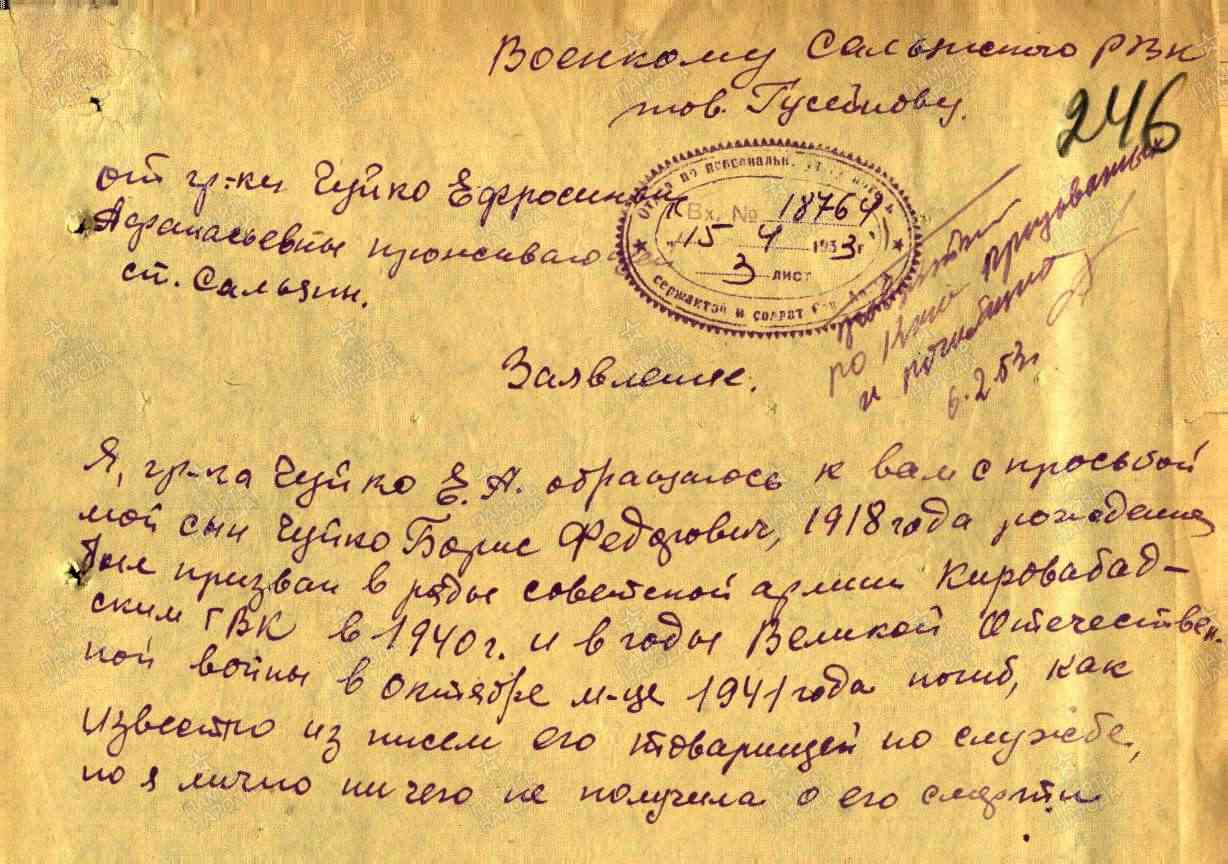 Военкому Сальянского РВК
тов. Гусейнову.
246
от гр-ки Чуйко Ефросиньи
Афанасьевны проживающей
ст. Сальяны.
Вх. № 18764
"15" 4 1953 г.
3 лист
сержантов и солдат
по призванным
и погибшим
6.2.53 г.
Заявление.
Я, гр-ка Чуйко Е. А. обращаюсь к вам с просьбой
мой сын Чуйко Борис Федорович, 1918 года рождения
был призван в ряды советской армии Кировабад-
ским ГВК в 1940 г. и в годы Великой Отечествен-
ной войны в октябре м-це 1941 года погиб, как
известно из писем его товарищей по службе,
но я лично ничего не получила о его смерти